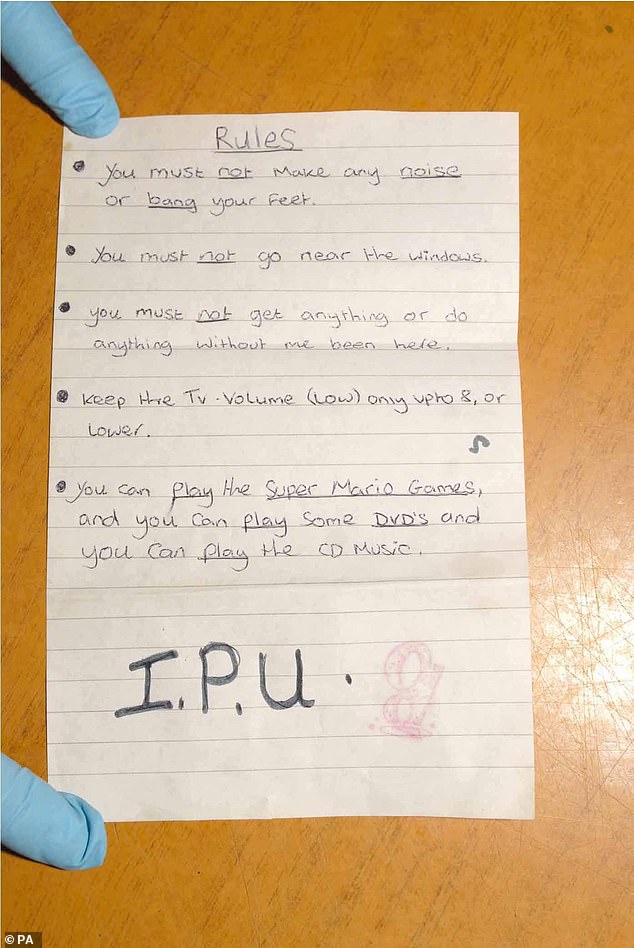 Rules
• You must not make any noise
or bang your feet.
• You must not go near the windows.
• you must not get anything or do
anything without me been here.
• Keep the Tv. Volume (Low) only upto 8, or
Lower.
• You can play the Super Mario Games,
and you can play some DVD's and
you can play the CD Music.
I.P.U.
© PA